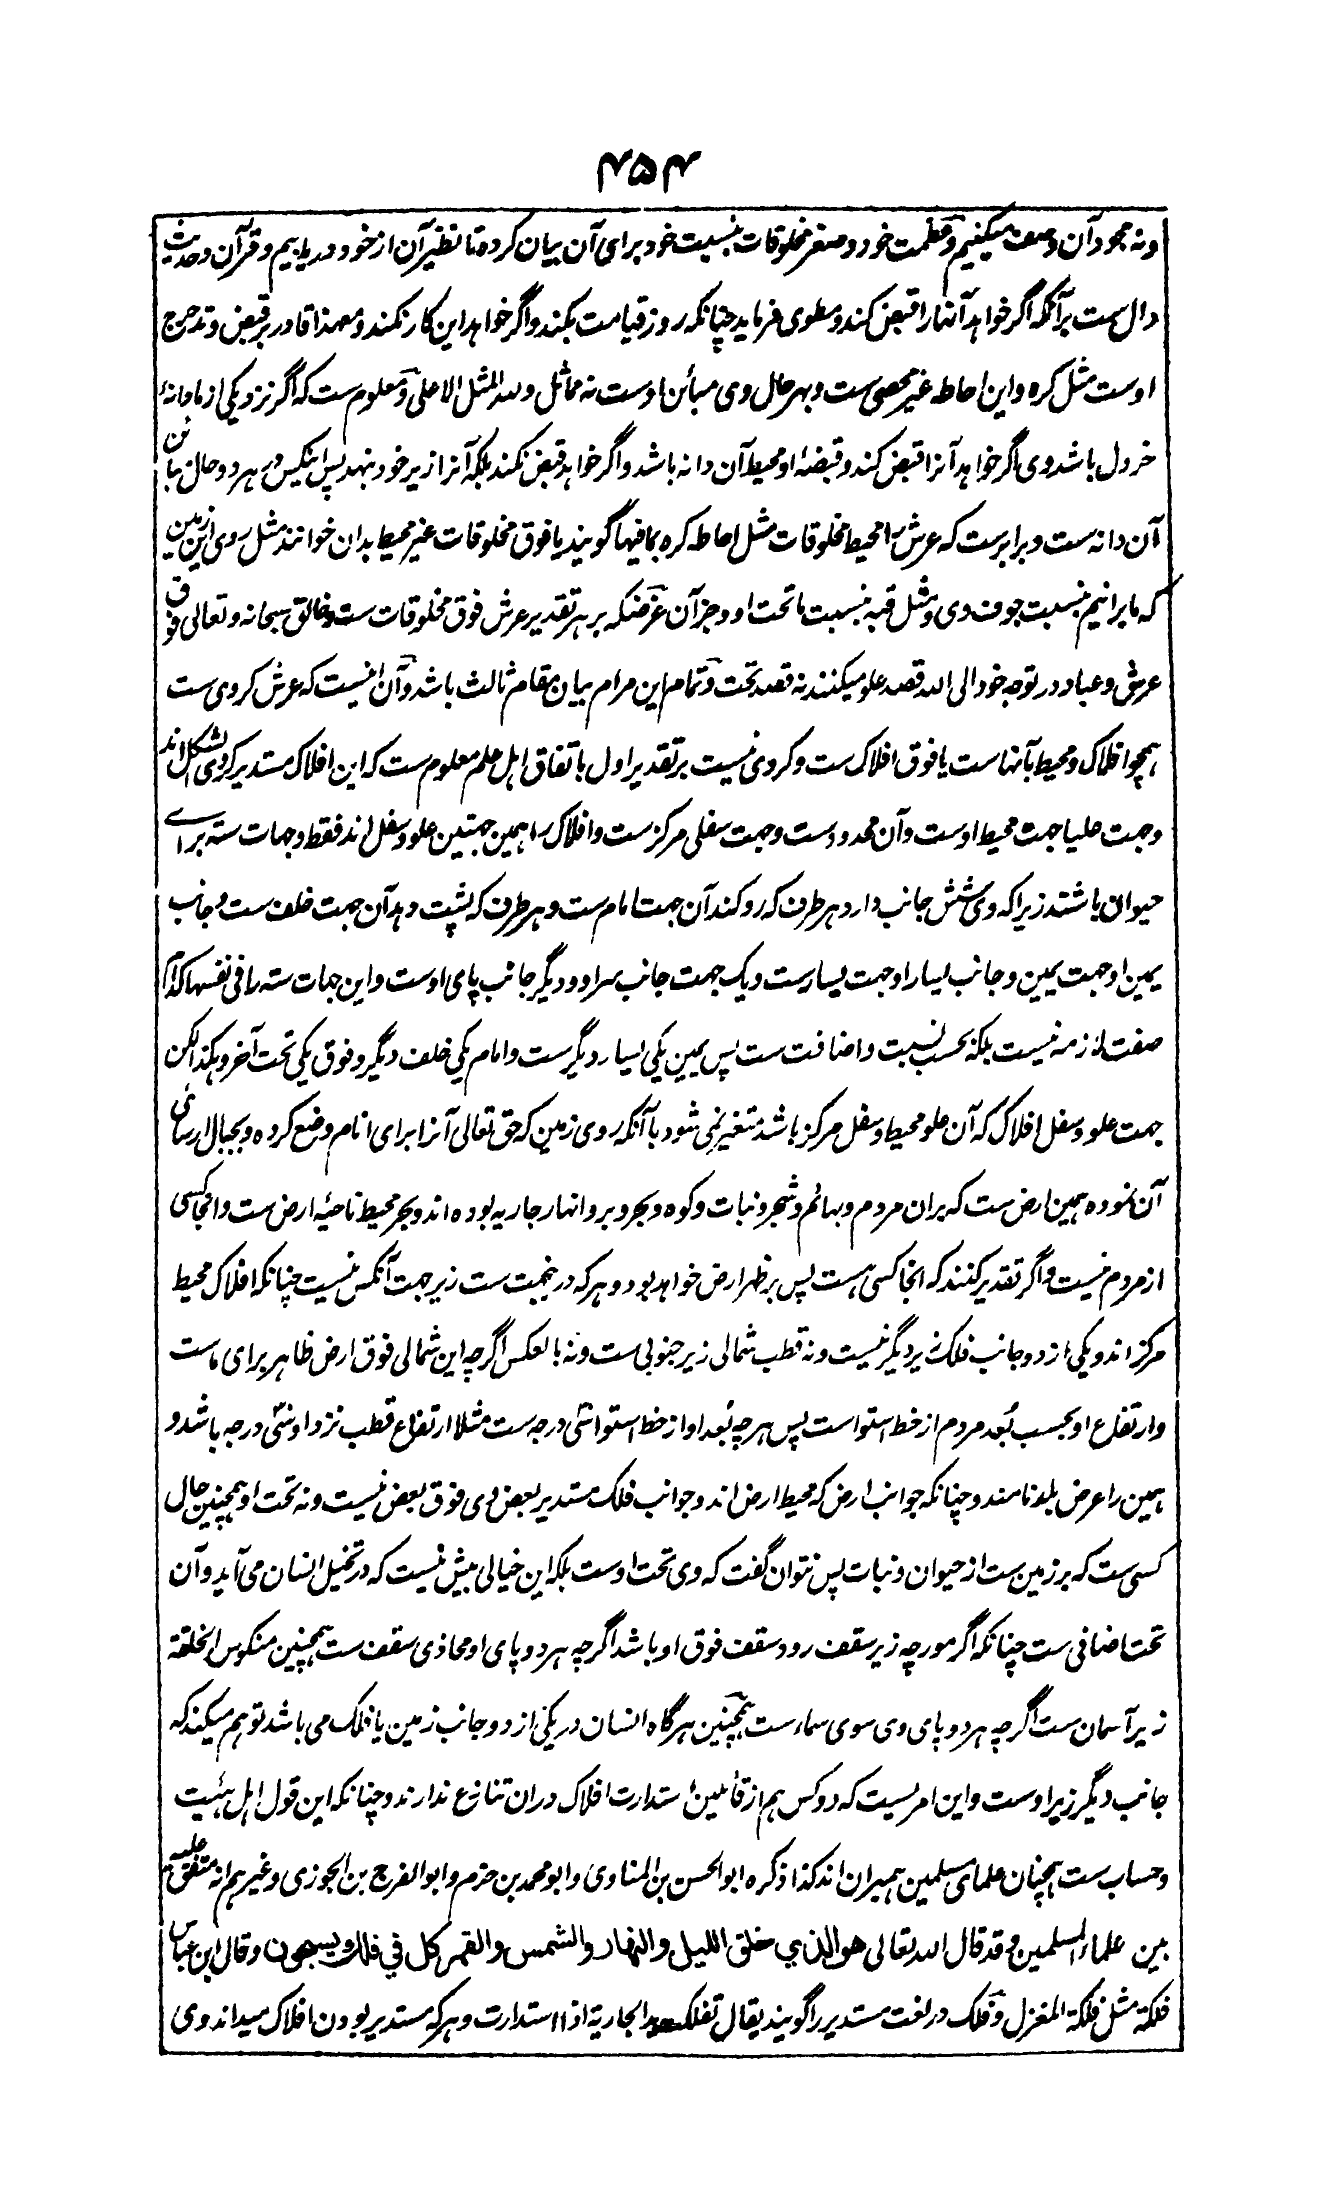 ۴۵۴
ونه مجرد آن وصف میکنیم و عظمت خود و صغر مخلوقات بنسبت خود برای آن بیان کرده تا نظیر آن از خود دریابیم و قرآن و حدیث
دال ست بر آنکه اگر خواهد آنها را قبض کند و مطوی فرماید چنانکه روز قیامت بکند و اگر خواهد این کار نکند و معهذا قادر بر قبض و تدحرج
اوست مثل کره و این احاطه غیر محصی ست و بهر حال وی مبائن اوست نه مماثل ولله المثل الاعلی و معلوم ست که اگر نزد یکی از ما دانهٔ
خردل باشد وی اگر خواهد آنرا قبض کند و قبضهٔ او محیط آن دانه باشد و اگر خواهد قبض نکند بلکه آنرا زیر خود بنهد پس اینکس در هر دو حال مبائن
آن دانه ست و برابرست که عرش را محیط مخلوقات مثل احاطه کره بما فیها گویند یا فوق مخلوقات غیر محیط بدان خوانند مثل روی این زمین
که ما برانیم بنسبت جوف وی و مثل قبه بنسبت ما تحت او و جز آن غرضکه بر هر تقدیر عرش فوق مخلوقات ست و خالق سبحانه و تعالی فوق
عرش و عباد در توجه خود الی الله قصد علو میکنند نه قصد تحت و تمام این مرام ببیان مقام ثالث باشد و آن اینست که عرش کروی ست
همچو افلاک و محیط بآنهاست یا فوق افلاک ست و کروی نیست بر تقدیر اول باتفاق اهل علم معلوم ست که این افلاک مستدیر کروی الشکل اند
وجهت علیا جهت محیط اوست و آن محدود ست وجهت سفلی مرکز ست و افلاک را همین جهتین علو و سفل اند فقط و جهات سته برای
حیوان باشند زیرا که وی شش جانب دارد هر طرف که رو کند آن جهت امام ست و هر طرف که پشت دهد آن جهت خلف ست و جانب
یمین او جهت یمین و جانب یسار او جهت یسارست و یک جهت جانب سر او و دیگر جانب پای اوست و این جهات سته را فی نفسها کدام
صفت لازمه نیست بلکه بحسب نسبت و اضافت ست پس یمین یکی یسار دیگر ست و امام یکی خلف دیگر و فوق یکی تحت آخر و هکذا لکن
جهت علو و سفل افلاک که آن علو محیط و سفل مرکز باشد متغیر نمی شود با آنکه روی زمین که حق تعالی آنرا برای انام وضع کرده و بجبال ارسای
آن نموده همین ارض ست که بران مردم و بهائم و شجر و نبات و کوه و بحر و بر و انهار جاریه بوده اند و بحر محیط ناحیهٔ ارض ست و انجا کسی
از مردم نیست و اگر تقدیر کنند که انجا کسی هست پس بر ظهر ارض خواهد بود و هر که در ینجهت ست زیر جهت آنکس نیست چنانکه افلاک محیط
مرکز اند و یکی از دو جانب فلک زیر دیگر نیست و نه قطب شمالی زیر جنوبی ست و نه بالعکس اگرچه این شمالی فوق ارض ظاهر برای ماست
و ارتفاع او بحسب بُعد مردم از خط استواست پس هر چه بُعد او از خط استوا سی درجه ست مثلا ارتفاع قطب نزد او سی درجه باشد و
همین را عرض بلد نامند و چنانکه جوانب ارض که محیط ارض اند و جوانب فلک مستدیر بعض وی فوق بعض نیست و نه تحت او همچنین حال
کسی ست که بر زمین ست از حیوان و نبات پس نتوان گفت که وی تحت اوست بلکه این خیالی بیش نیست که در تخیل انسان می آید و آن
تحت اضافی ست چنانکه اگر مورچه زیر سقف رود سقف فوق او باشد اگرچه هر دو پای او محاذی سقف ست همچنین منکوس الخلقة
زیر آسمان ست اگرچه هر دو پای وی سوی سماء ست همچنین هرگاه انسان در یکی از دو جانب زمین یا فلک می باشد توهم میکند که
جانب دیگر زیر اوست و این امریست که دو کس هم از قائلین استدارت افلاک دران تنازع ندارند و چنانکه این قول اهل هیئت
و حساب ست همچنان علمای مسلمین همبران اند کذا ذکره ابو الحسن بن المناوی و ابو محمد بن حزم و ابو الفرج بن الجوزی و غیر هم انه متفق علیه
بین علماء المسلمین و قد قال الله تعالی هو الذي خلق الليل والنهار والشمس والقمر كل في فلك يسبحون و قال ابن عباس
فلکة مثل فلکة المغزل و فلک در لغت مستدیر را گویند یقال تفلک الجاریة اذا استدارت و هر که مستدیر بودن افلاک میداند وی